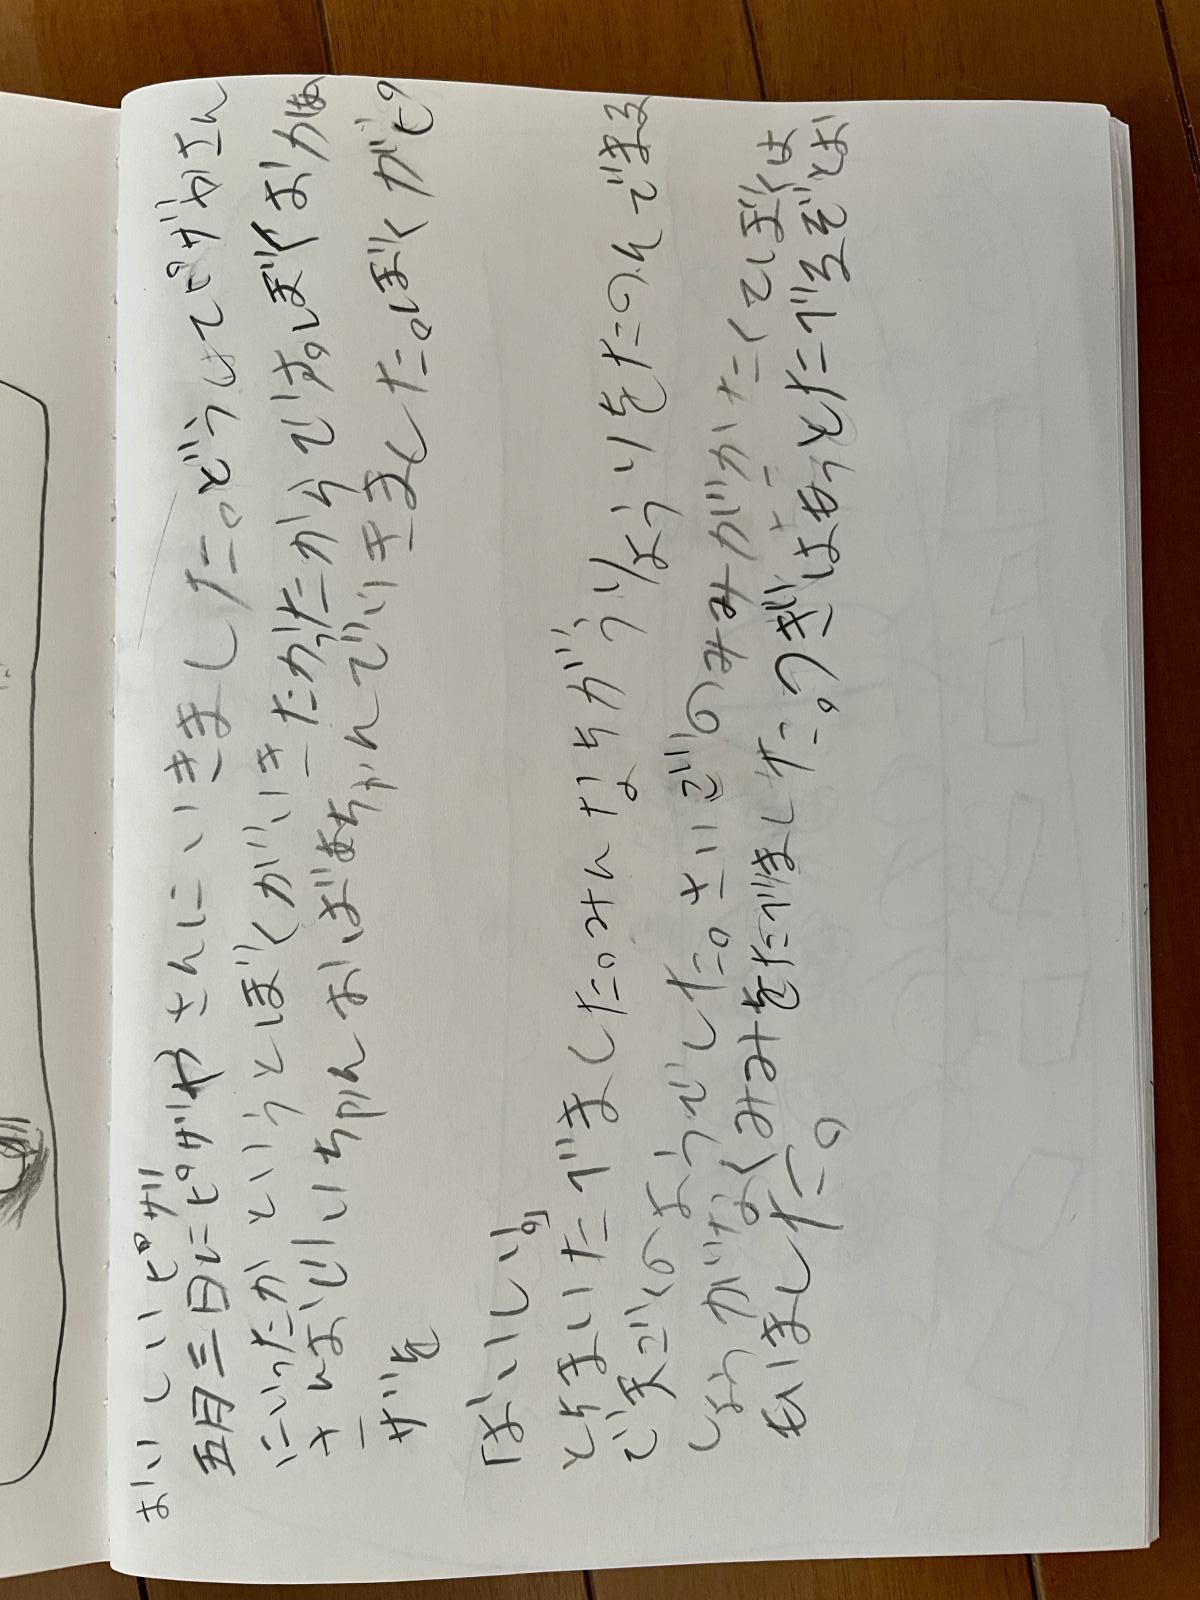 おいしいピザ
五月三日にピザやさんにいきました。どうしてピザやさん
にいったかというとぼくがいきたかったからです。ぼくはおかあ
さんおじいちゃんおばあちゃんでいきました。ぼくがピ
ザを
「おいしい。」
と七まいたべました。みんなちがうりょうりをたのんでまる
で天ごくのようでした。さいごのみみがかたくてぼくは
しょうがなくみみをたべました。つぎはもっとたべるぞとお
もいました。